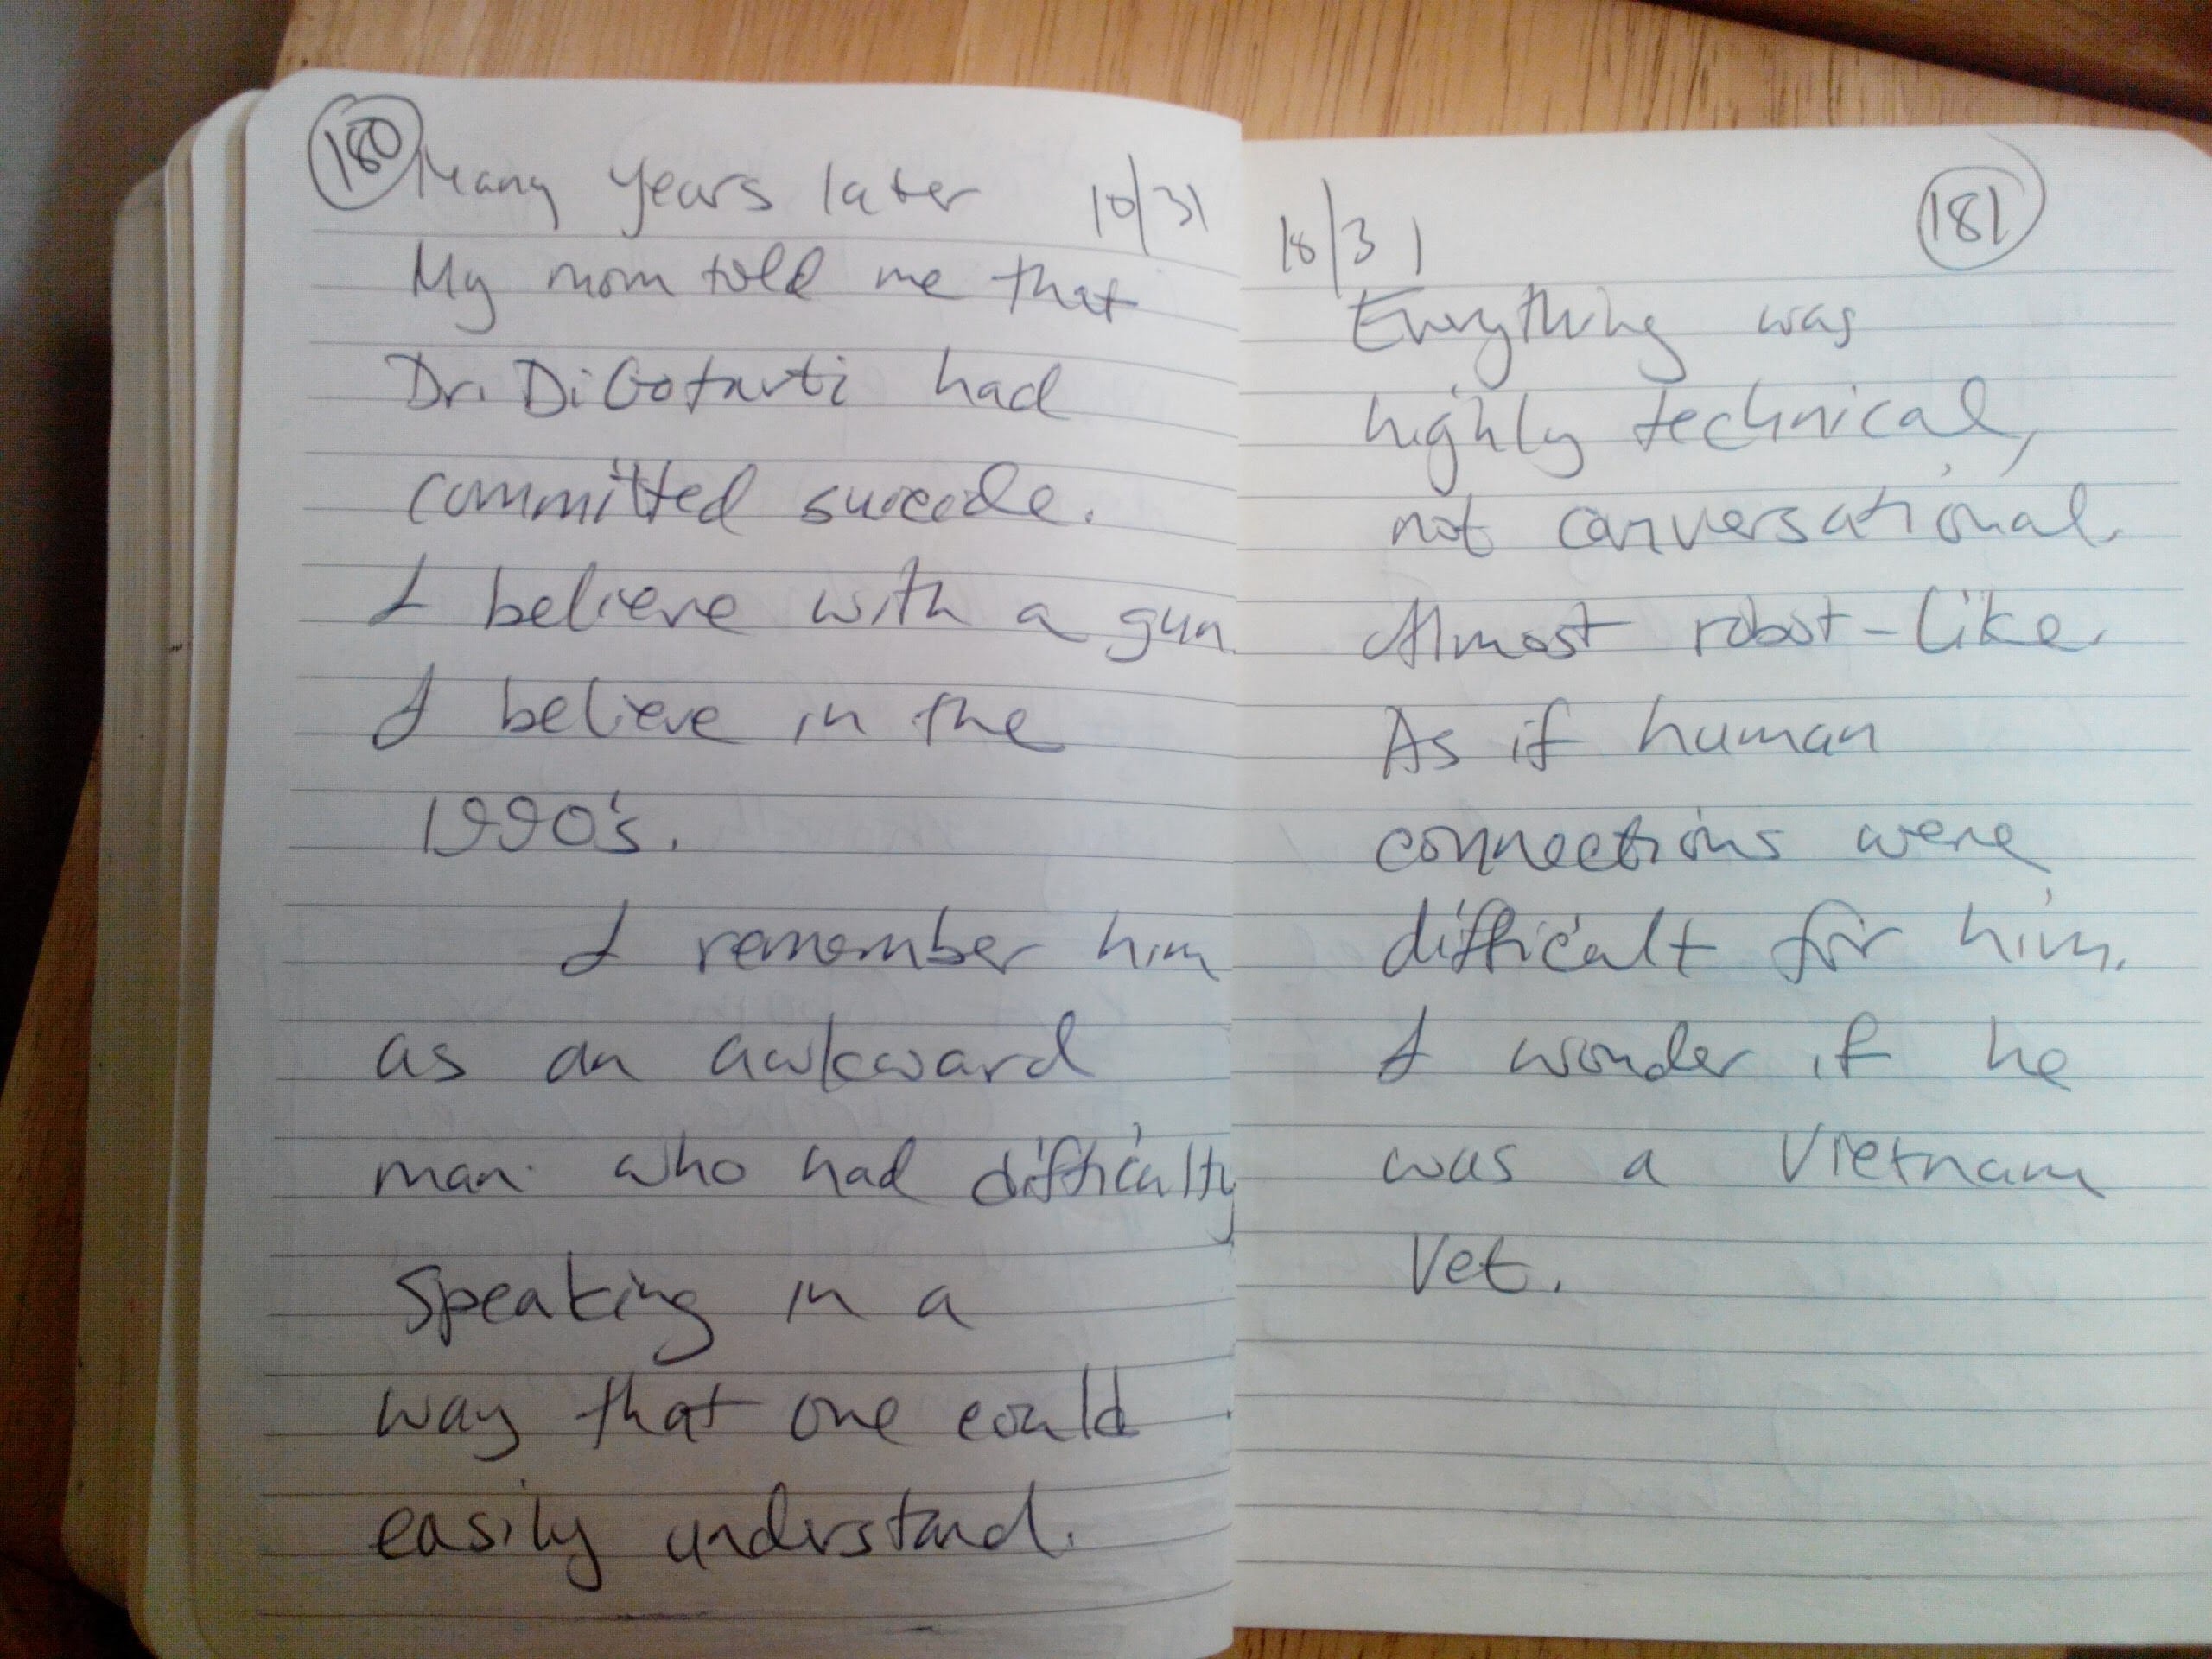 180 Many years later 10/31
My mom told me that
Dr. DiGotarti had
committed suicede.
I believe with a gun.
I believe in the
1990's.
I remember him
as an awkward
man who had difficulty
speaking in a
way that one could
easily understand.
10/31 181
Everything was
highly technical,
not conversational.
Almost robot-like.
As if human
connections were
difficult for him.
I wonder if he
was a Vietnam
Vet.